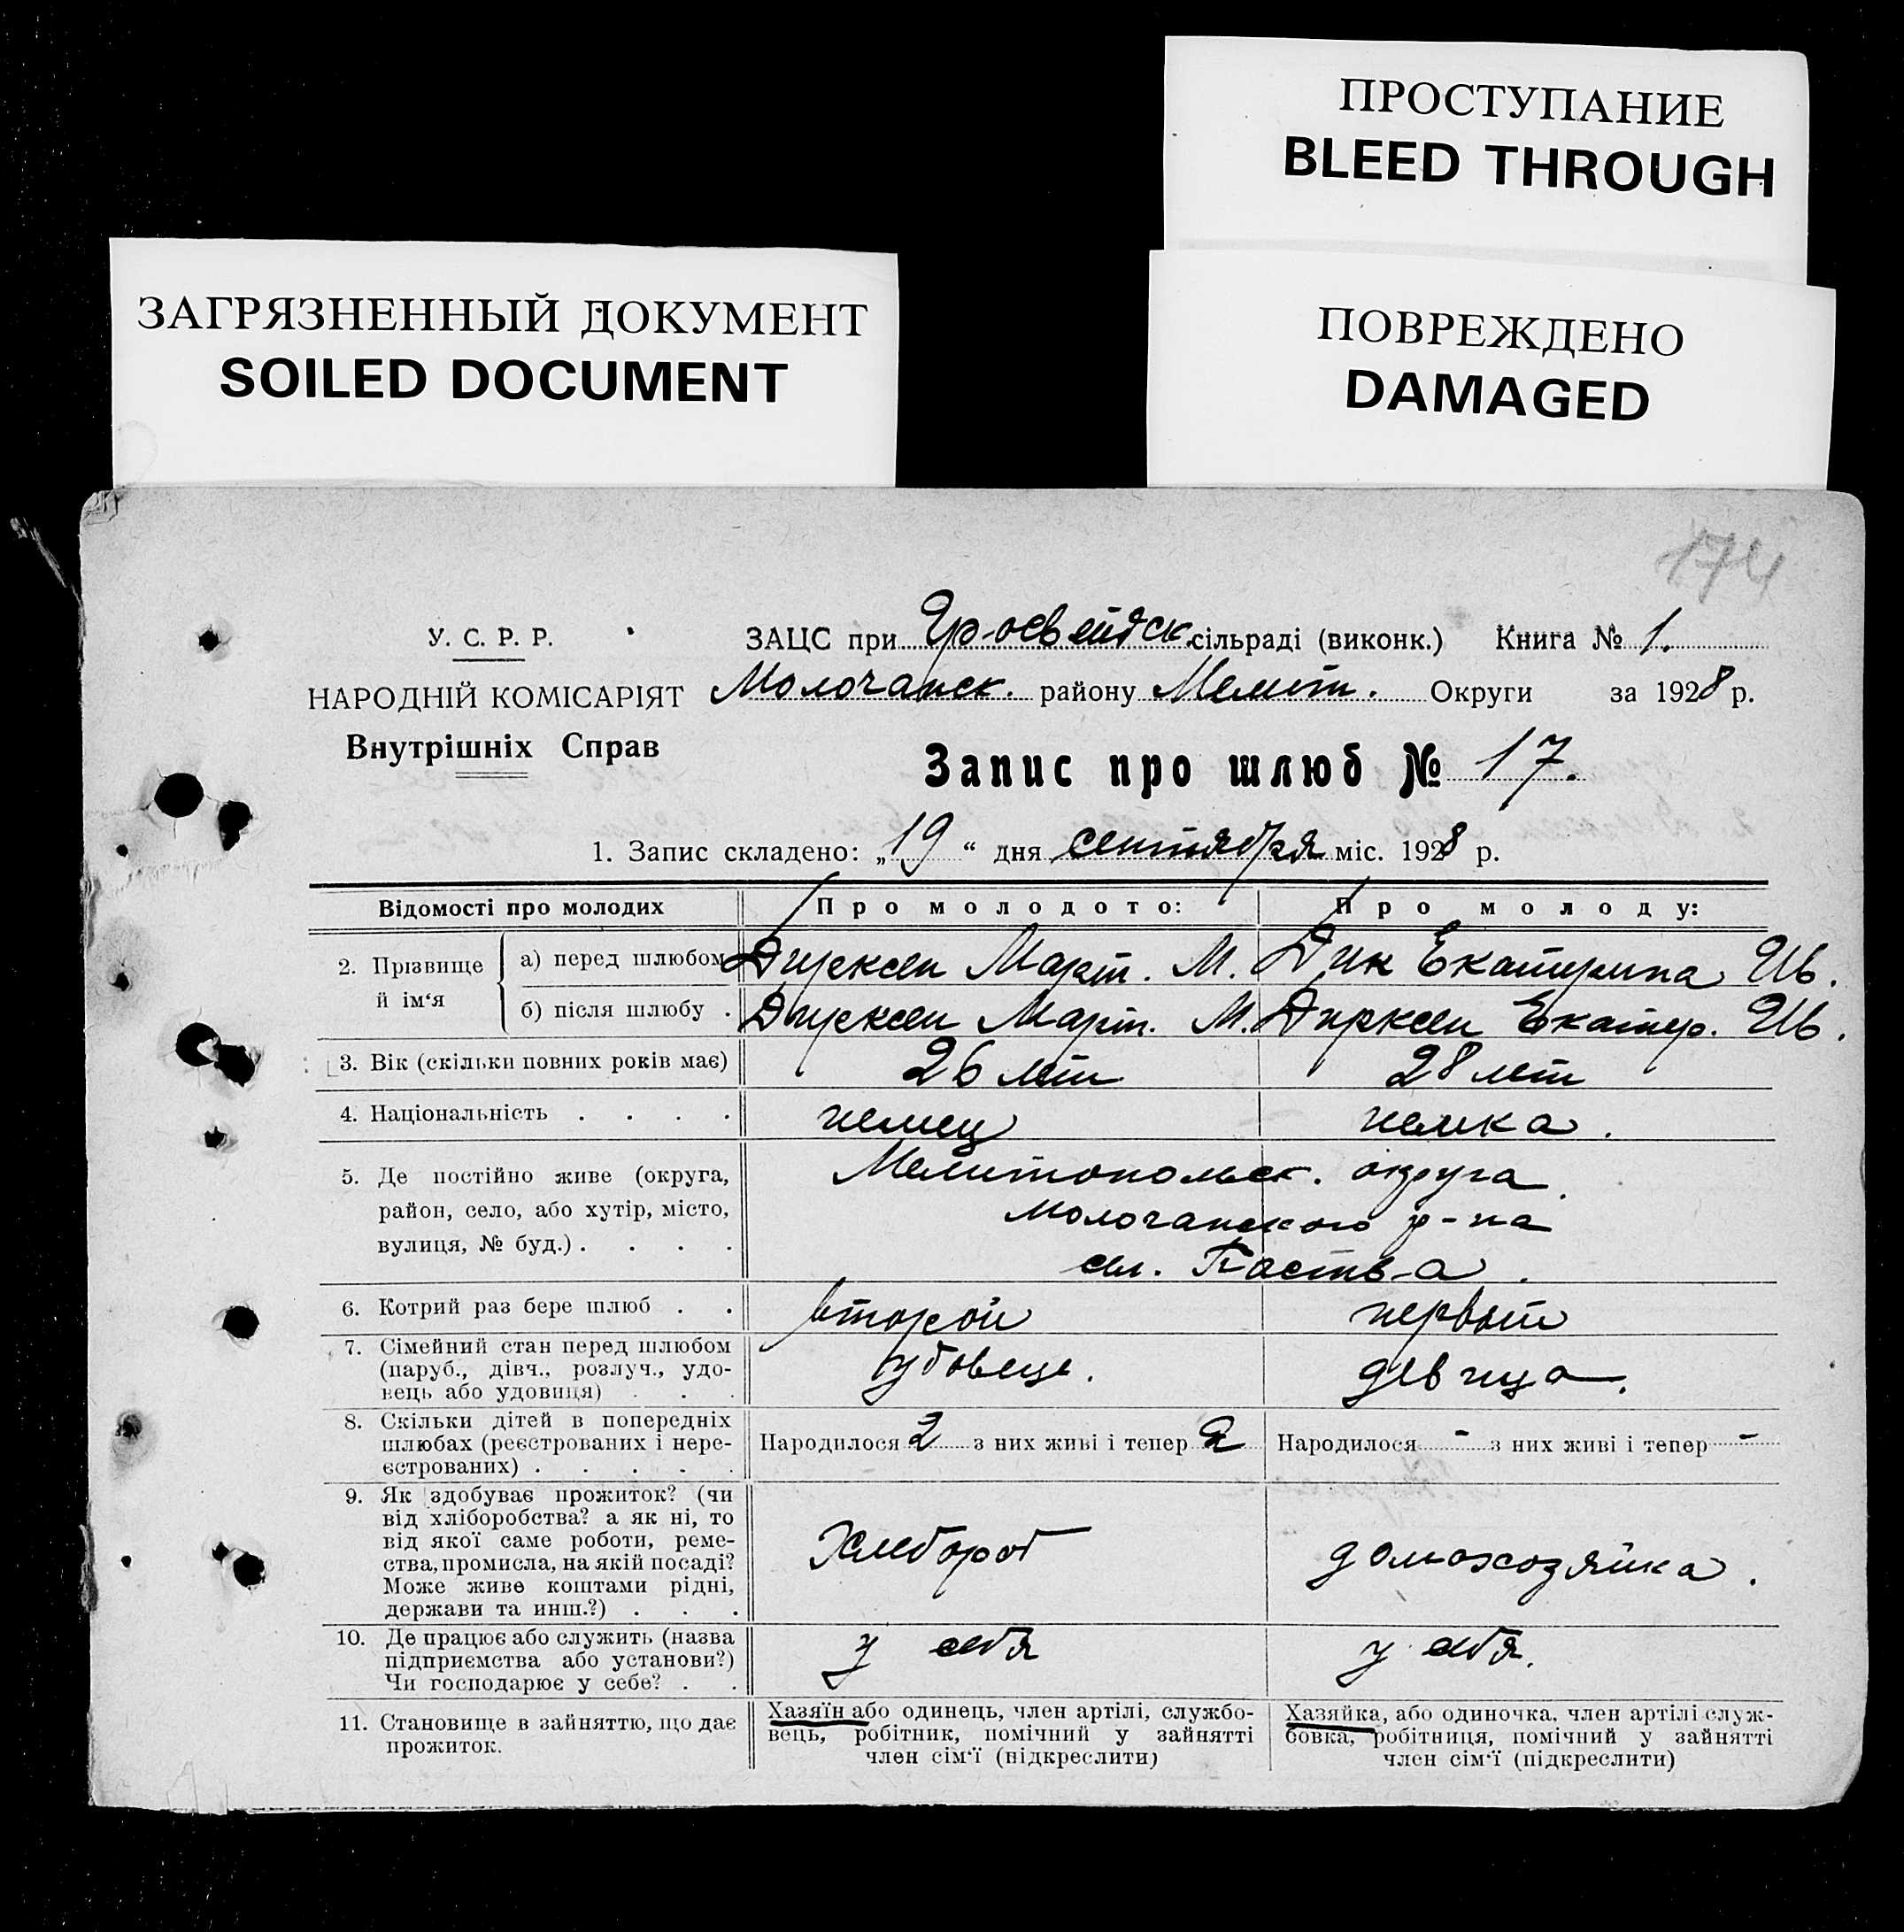 ПРОСТУПАНИЕ
BLEED THROUGH
ЗАГРЯЗНЕННЫЙ ДОКУМЕНТ
SOILED DOCUMENT
ПОВРЕЖДЕНО
DAMAGED
174
У. С. Р. Р.
ЗАЦС при Гросвейдск. сільраді (виконк.) Книга № 1.
НАРОДНІЙ КОМІСАРІЯТ Молочанск. району Мелит. Округи за 1928 р.
Внутрішніх Справ
Запис про шлюб № 17.
1. Запис складено: „19“ дня сентября міс. 1928 р.
Відомості про молодих Про молодого: Про молоду:
2. Прізвище й ім‘я
а) перед шлюбом Дирксен Март. М. Дик Екатерина Ив.
б) після шлюбу . Дирксен Март. М. Дирксен Екатер. Ив.
3. Вік (скільки повних років має) 26 лет 28 лет
4. Національність . . . . немец немка.
5. Де постійно живе (округа, район, село, або хутір, місто, вулиця, № буд.) . . . .
Мелитопольск. округа
Молочанского р-на
сел. Паств-а.
6. Котрий раз бере шлюб . . второй первый
7. Сімейний стан перед шлюбом
(паруб., дівч., розлуч., удо-
вець або удовиця) . . .
удовець. девица.
8. Скільки дітей в попередніх
шлюбах (реєстрованих і нере-
єстрованих) . . . . .
Народилося 2 з них живі і тепер 2 Народилося - з них живі і тепер -
9. Як здобуває прожиток? (чи
від хліборобства? а як ні, то
від якої саме роботи, реме-
ства, промисла, на якій посаді?
Може живе коштами рідні,
держави та инш.?) . . .
Хлебороб домохозяйка.
10. Де працює або служить (назва
підприємства або установи?)
Чи господарює у себе? . .
у себя у себя.
11. Становище в зайняттю, що дає
прожиток.
Хазяїн або одинець, член артілі, службо-
вець, робітник, помічний у зайнятті
член сім‘ї (підкреслити)
Хазяйка, або одиночка, член артілі служ-
бовка, робітниця, помічний у зайнятті
член сім‘ї (підкреслити)